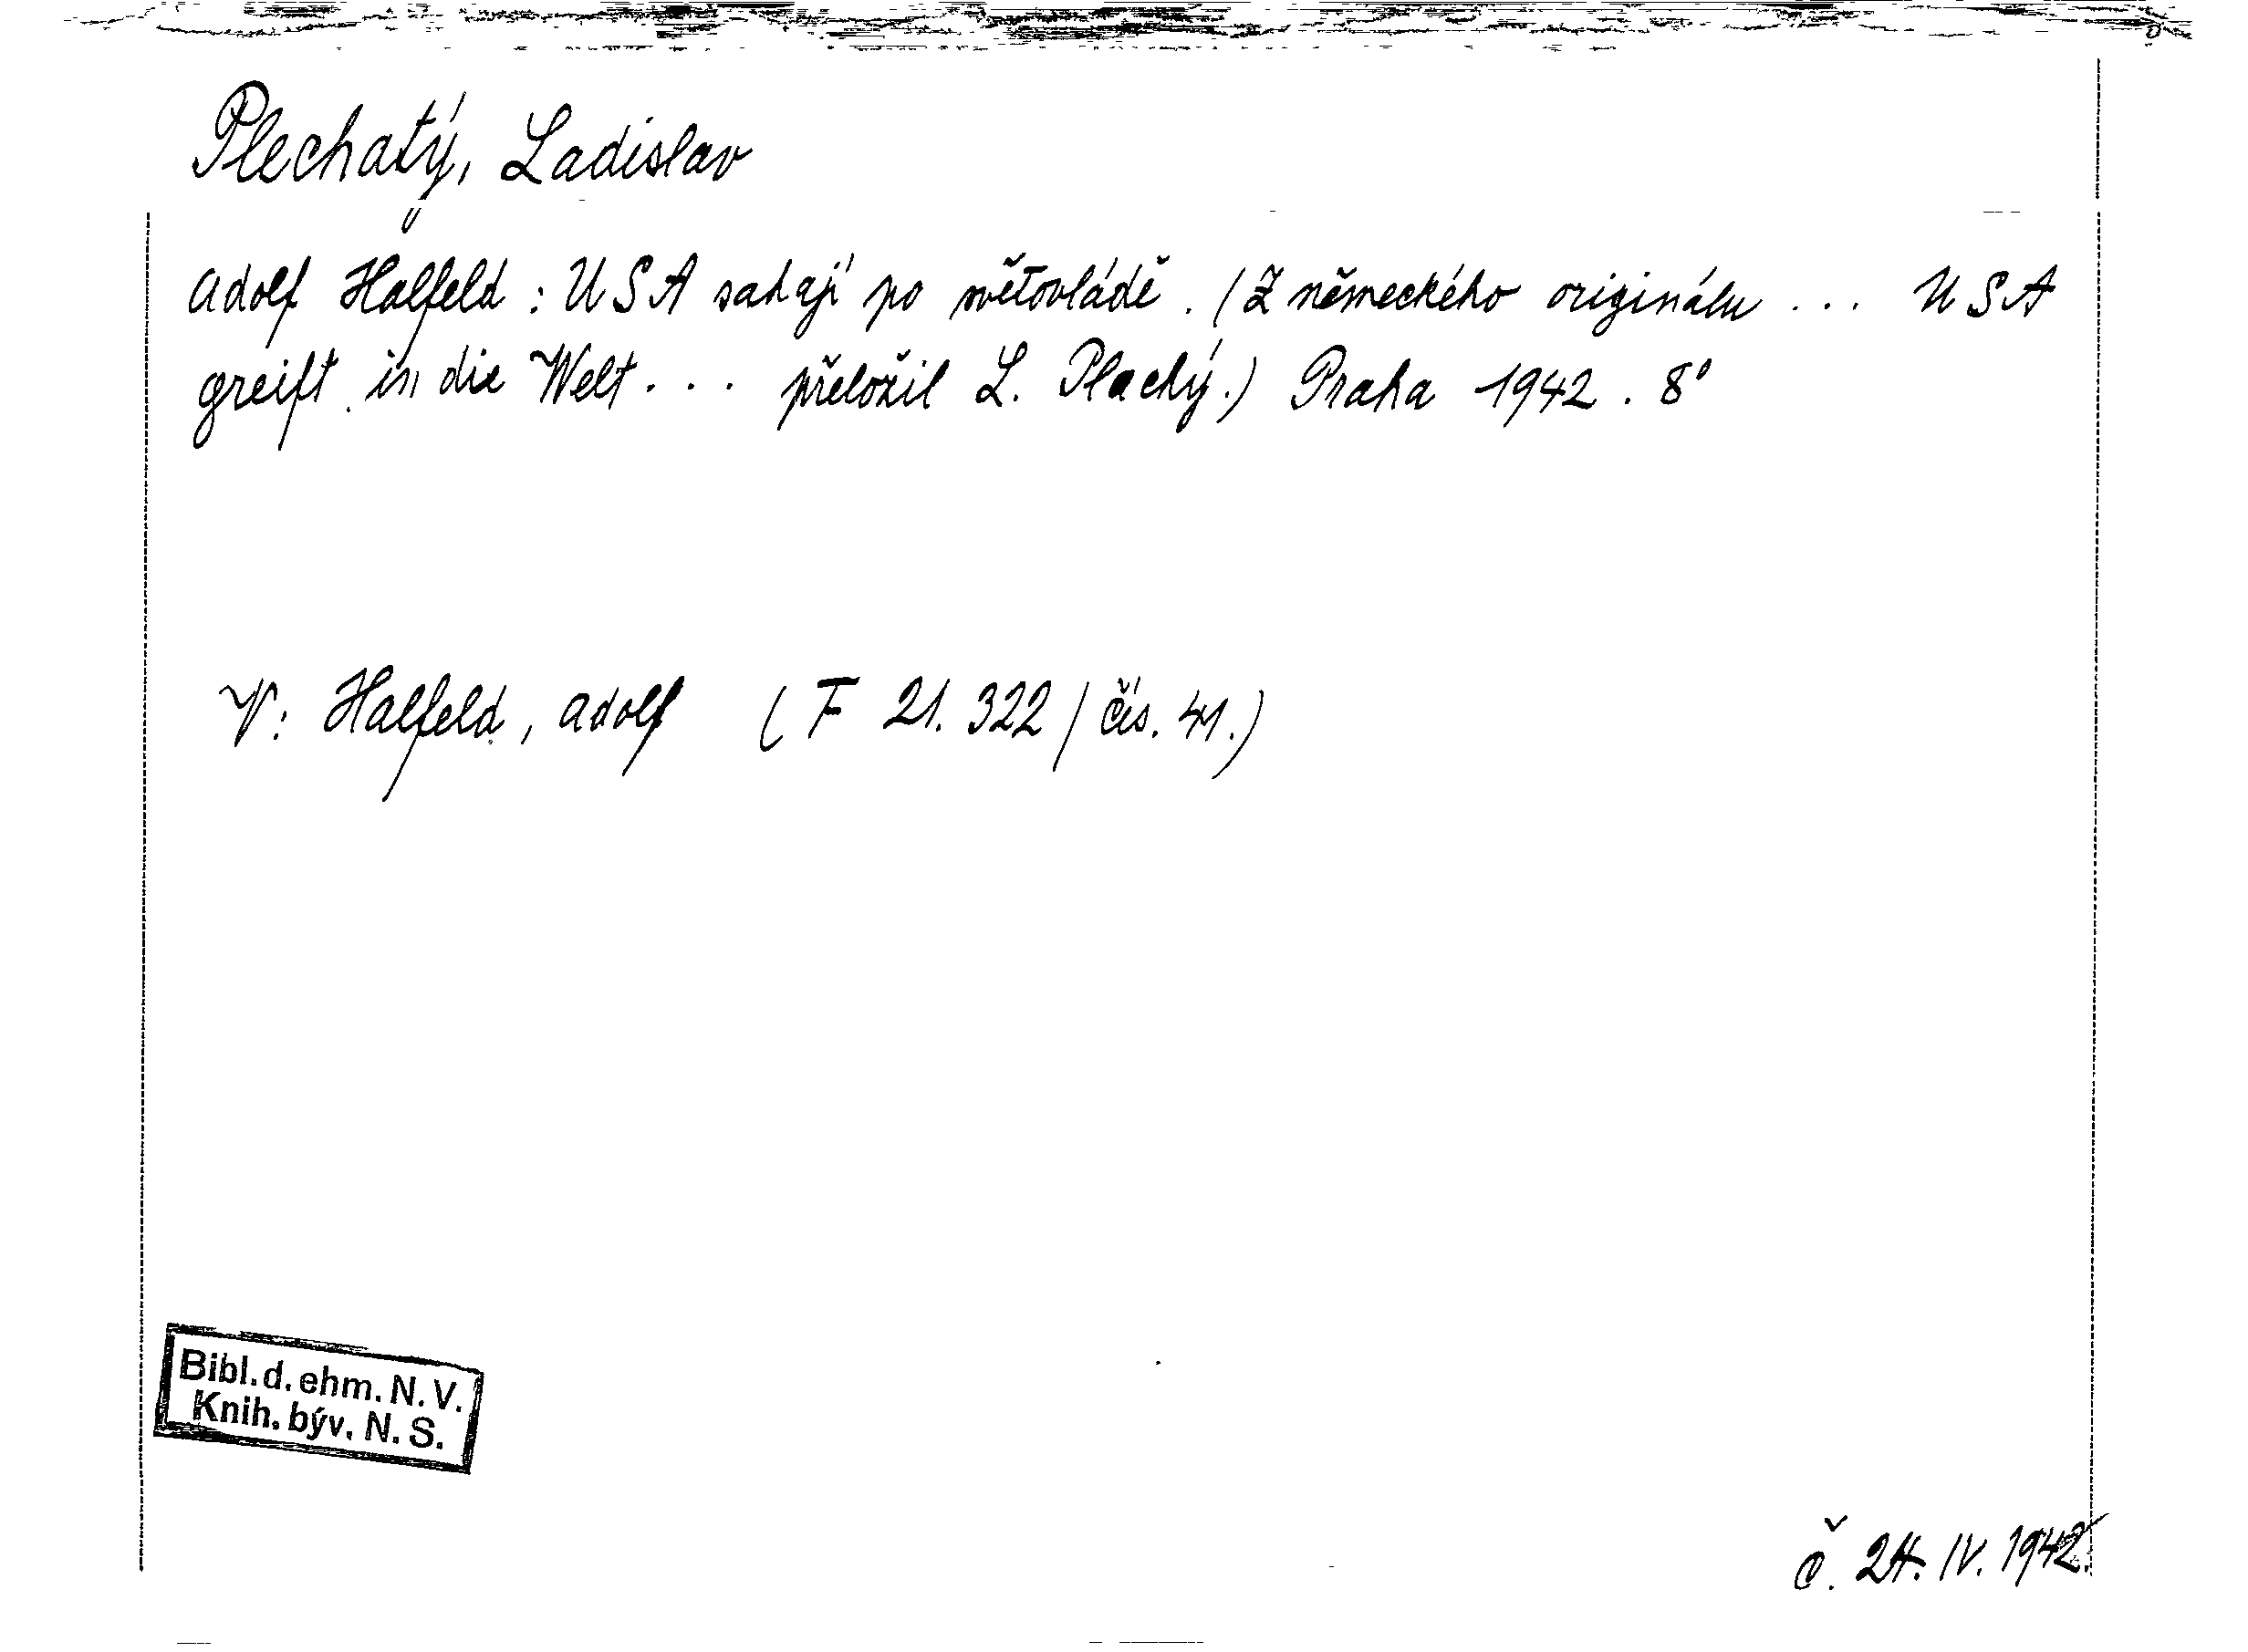 Plechatý, Ladislav
Adolf Halfeld : USA sahají po světovládě. (Z německého originálu ... USA
greift in die Welt ... přeložil L. Plachý.) Praha 1942. 8°
V: Halfeld, Adolf (F 21.322/čís. 41.)
Bibl. d. ehm. N. V.
Knih. býv. N. S.
č. 24. IV. 1942.